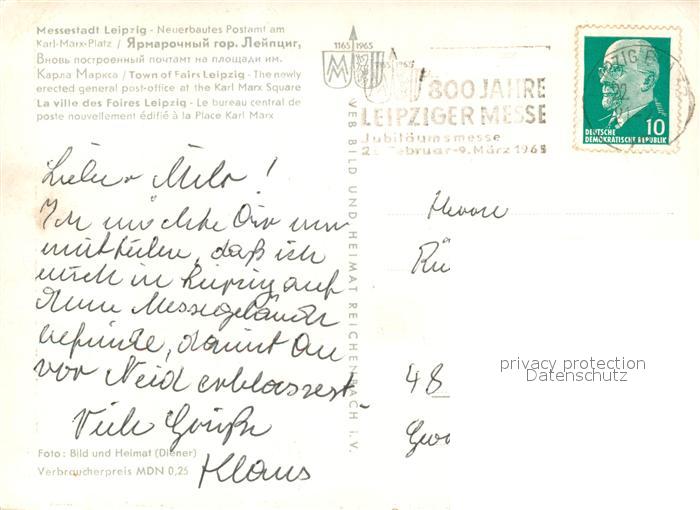 Messestadt Leipzig - Neuerbautes Postamt am
Karl-Marx-Platz / Ярмарочный гор. Лейпциг,
Вновь построенный почтамт на площади им.
Карла Маркса / Town of Fairs Leipzig - The newly
erected general post-office at the Karl Marx Square
La ville des Foires Leipzig - Le bureau central de
poste nouvellement édifié à la Place Karl Marx
1165 1965
M
800 JAHRE
LEIPZIGER MESSE
Jubiläumsmesse
Februar-9. März 1965
DEUTSCHE
DEMOKRATISCHE REPUBLIK
10
Lieber Milo!
Ich möchte Dir nur
mitteilen, daß ich
mich in Leipzig auf
dem Messegelände
befinde, damit Du
vor Neid erblassest.
Viele Grüße
Klaus
VEB BILD UND HEIMAT REICHENBACH i.V.
Herrn
Rü
48
privacy protection
Datenschutz
Foto: Bild und Heimat (Diener)
Verbraucherpreis MDN 0,25